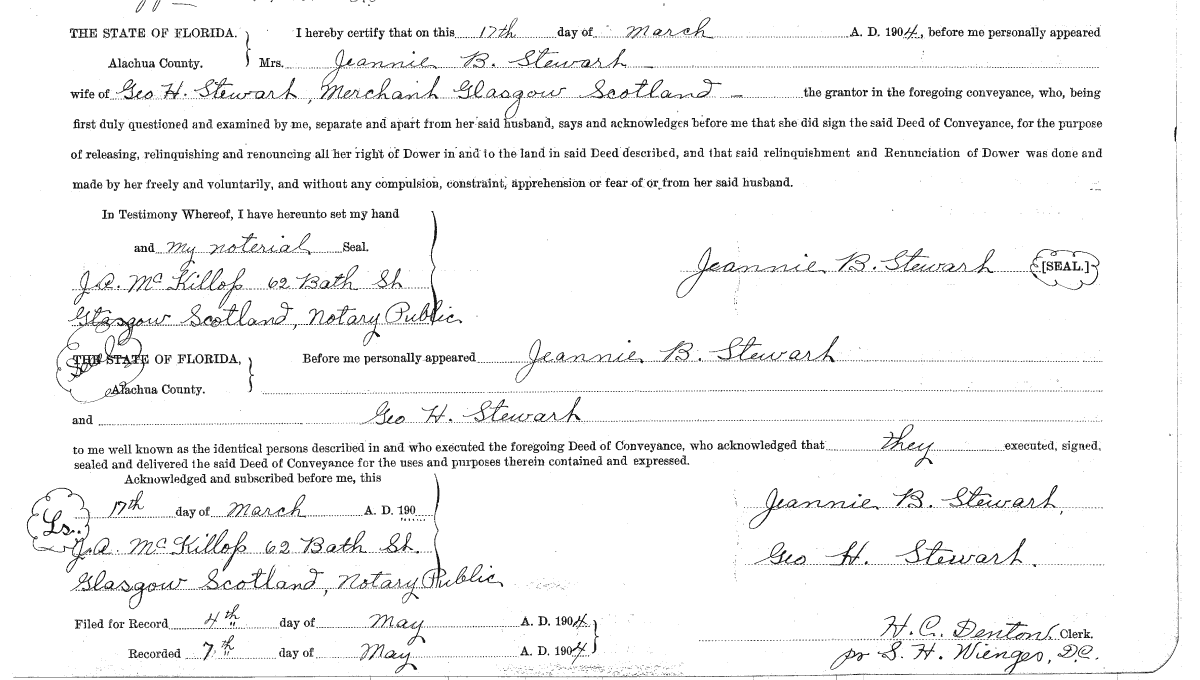 THE STATE OF FLORIDA. I hereby certify that on this 17th day of March A. D. 1904, before me personally appeared
Alachua County. Mrs. Jeannie B. Stewart
wife of Geo H. Stewart, Merchant Glasgow Scotland the grantor in the foregoing conveyance, who, being
first duly questioned and examined by me, separate and apart from her said husband, says and acknowledges before me that she did sign the said Deed of Conveyance, for the purpose
of releasing, relinquishing and renouncing all her right of Dower in and to the land in said Deed described, and that said relinquishment and Renunciation of Dower was done and
made by her freely and voluntarily, and without any compulsion, constraint, apprehension or fear of or from her said husband.
In Testimony Whereof, I have hereunto set my hand
and my noterial Seal.
Jeannie B. Stewart [SEAL.]
J.A. McKillop 62 Bath St
Glasgow Scotland, Notary Public
THE STATE OF FLORIDA, Before me personally appeared Jeannie B. Stewart
Alachua County.
and Geo H. Stewart
to me well known as the identical persons described in and who executed the foregoing Deed of Conveyance, who acknowledged that they executed, signed,
sealed and delivered the said Deed of Conveyance for the uses and purposes therein contained and expressed.
Acknowledged and subscribed before me, this
Ls. 17th day of March A. D. 190
Jeannie B. Stewart,
J.A. McKillop 62 Bath St.
Geo H. Stewart.
Glasgow Scotland, Notary Public
Filed for Record 4th day of May A. D. 1904
H. C. Denton, Clerk.
Recorded 7th day of May A. D. 1904
pr S. H. Wienges, D.C.